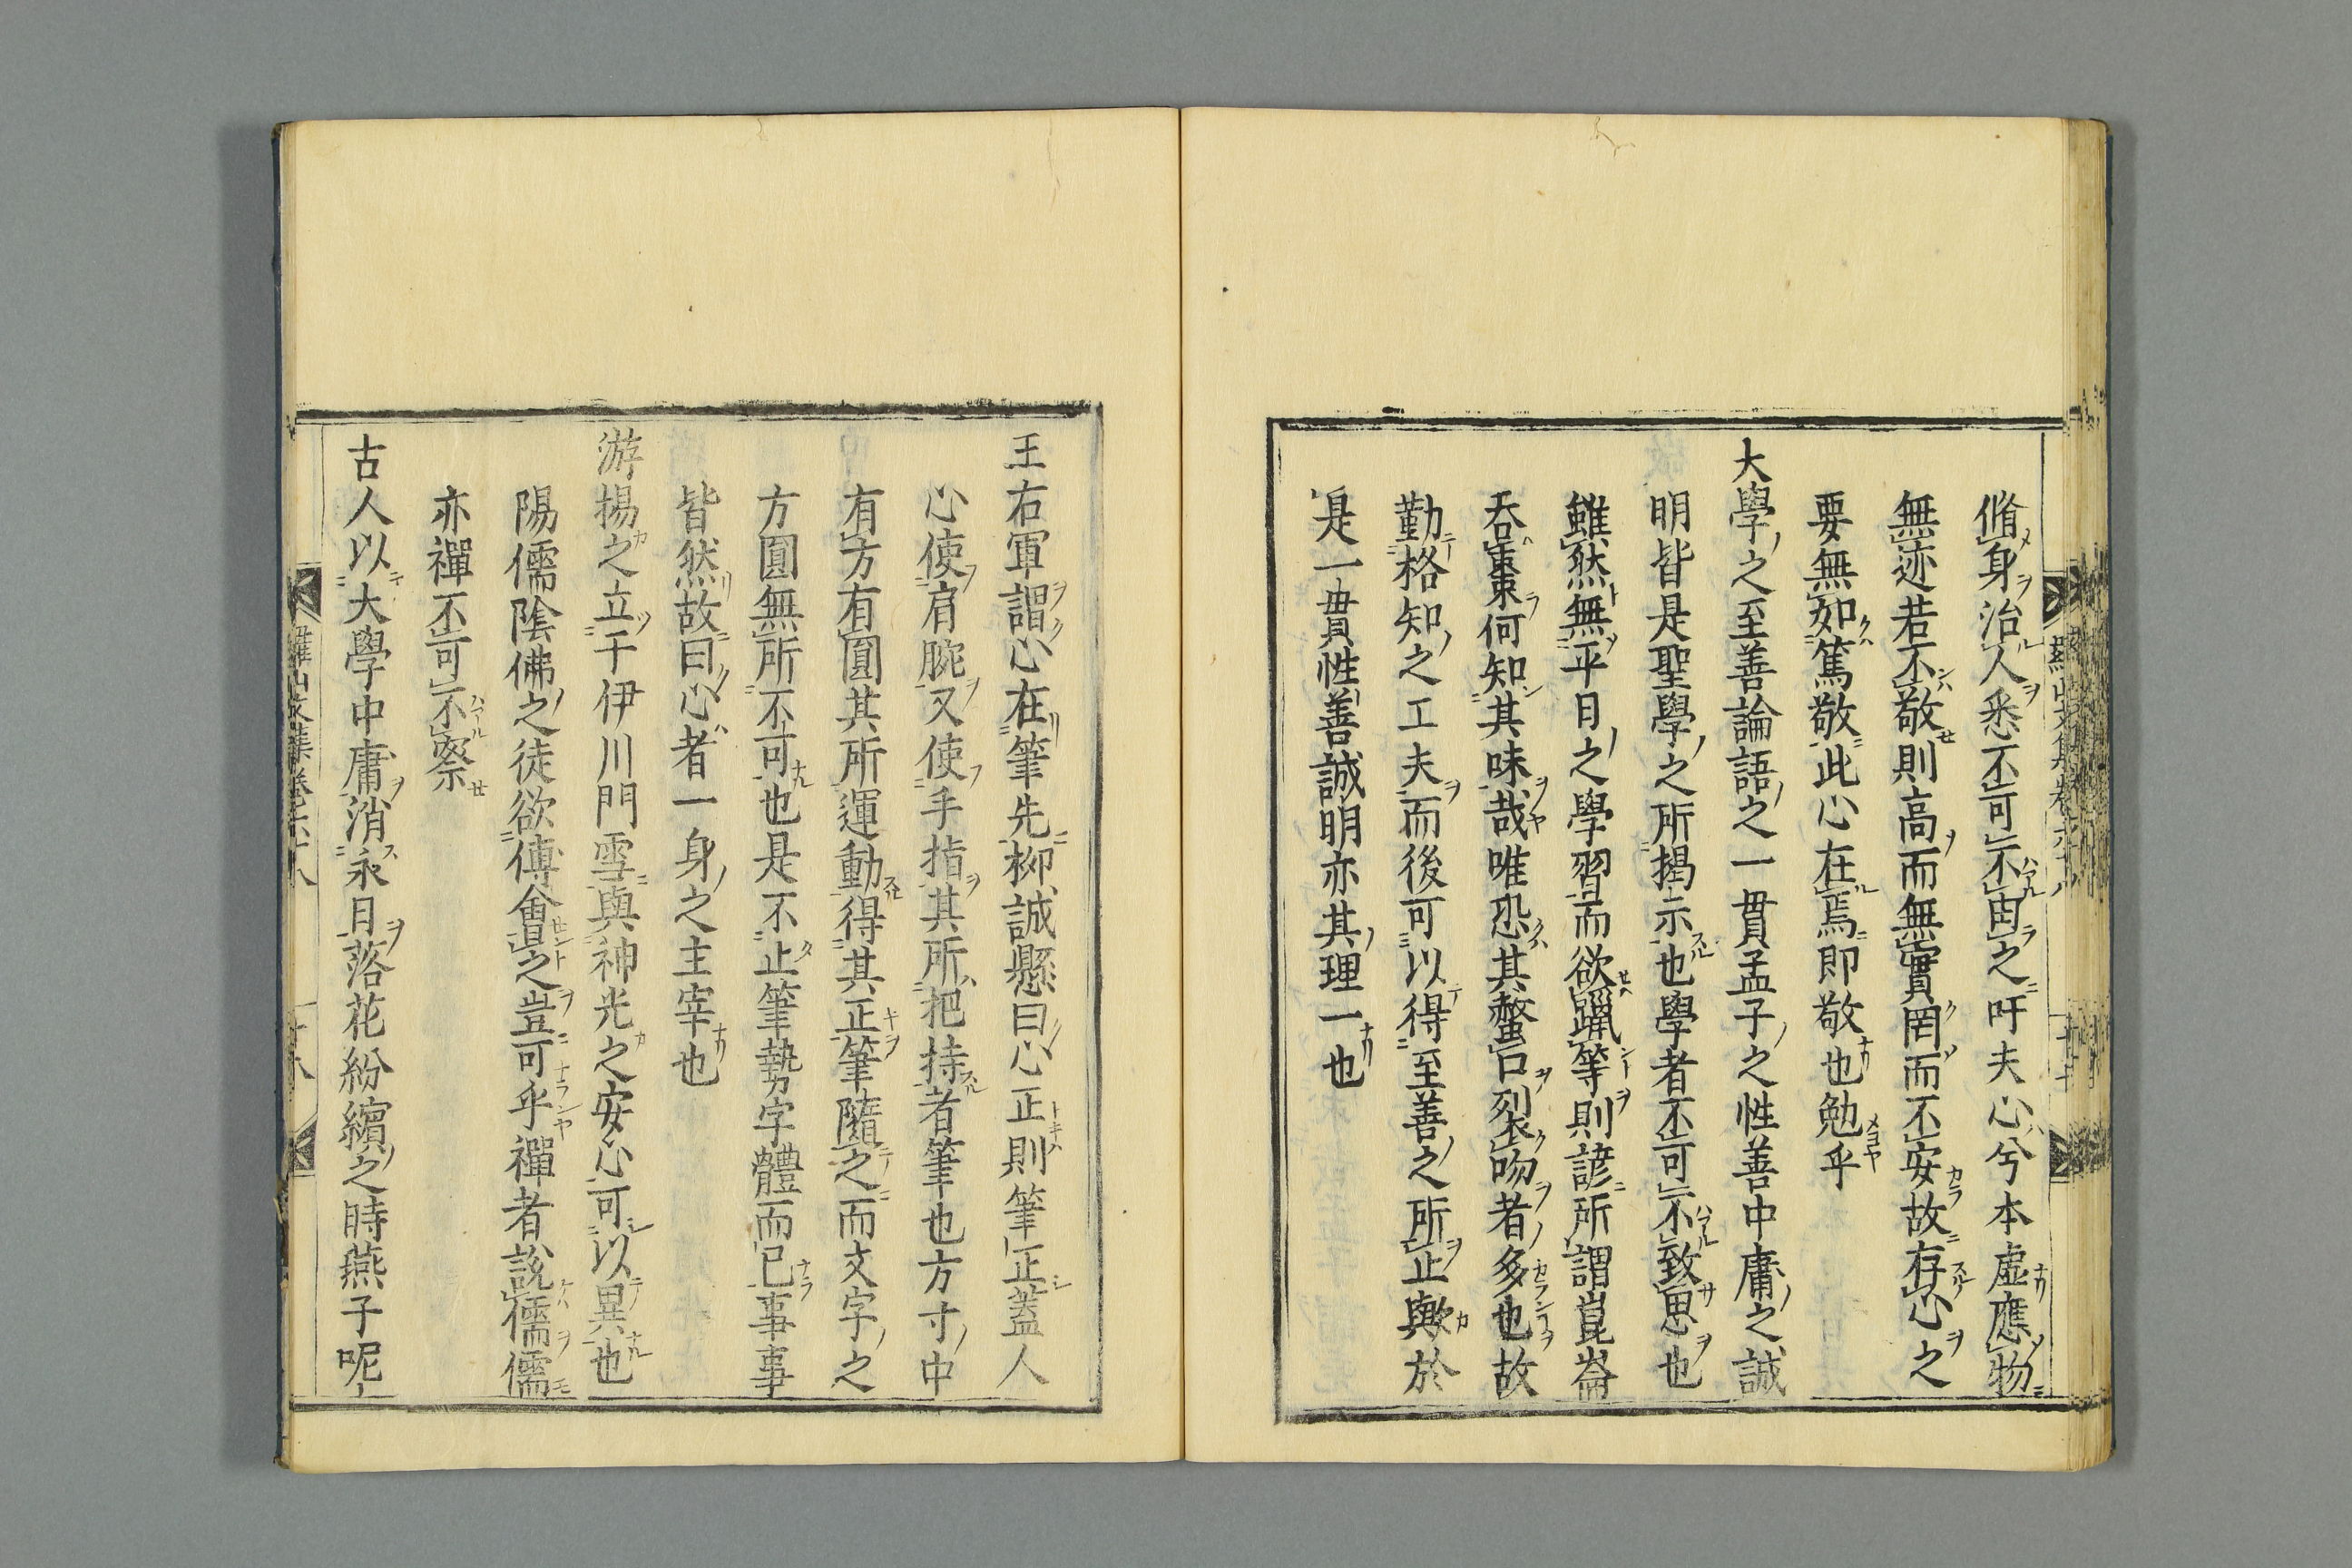 脩身治人悉不可不由之吁夫心兮本虛應物
無迹若不敬則高而無實罔而不安故存心之
要無如篤敬此心在焉即敬也勉乎
大學之至善論語之一貫孟子之性善中庸之誠
明皆是聖學之所揭示也學者不可不致思也
雖然無平日之學習而欲躐等則諺所謂崑崙
吞棗何知其味哉唯恐其螫口裂吻者多也故
勤格知之工夫而後可以得至善之所止歟於
是一貫性善誠明亦其理一也
王右軍謂心在筆先柳誠懸曰心正則筆正蓋人
心使肩腕又使手指其所把持者筆也方寸中
有方有圓其所運動得其正筆隨之而文字之
方圓無所不可也是不止筆勢字體而已事事
皆然故曰心者一身之主宰也
游揚之立于伊川門雪與神光之安心可以異也
陽儒陰佛之徒欲傅會之豈可乎禪者說儒儒
亦禪不可不察
古人以大學中庸消永日落花紛繽之時燕子呢
羅山文集卷六十八 十八